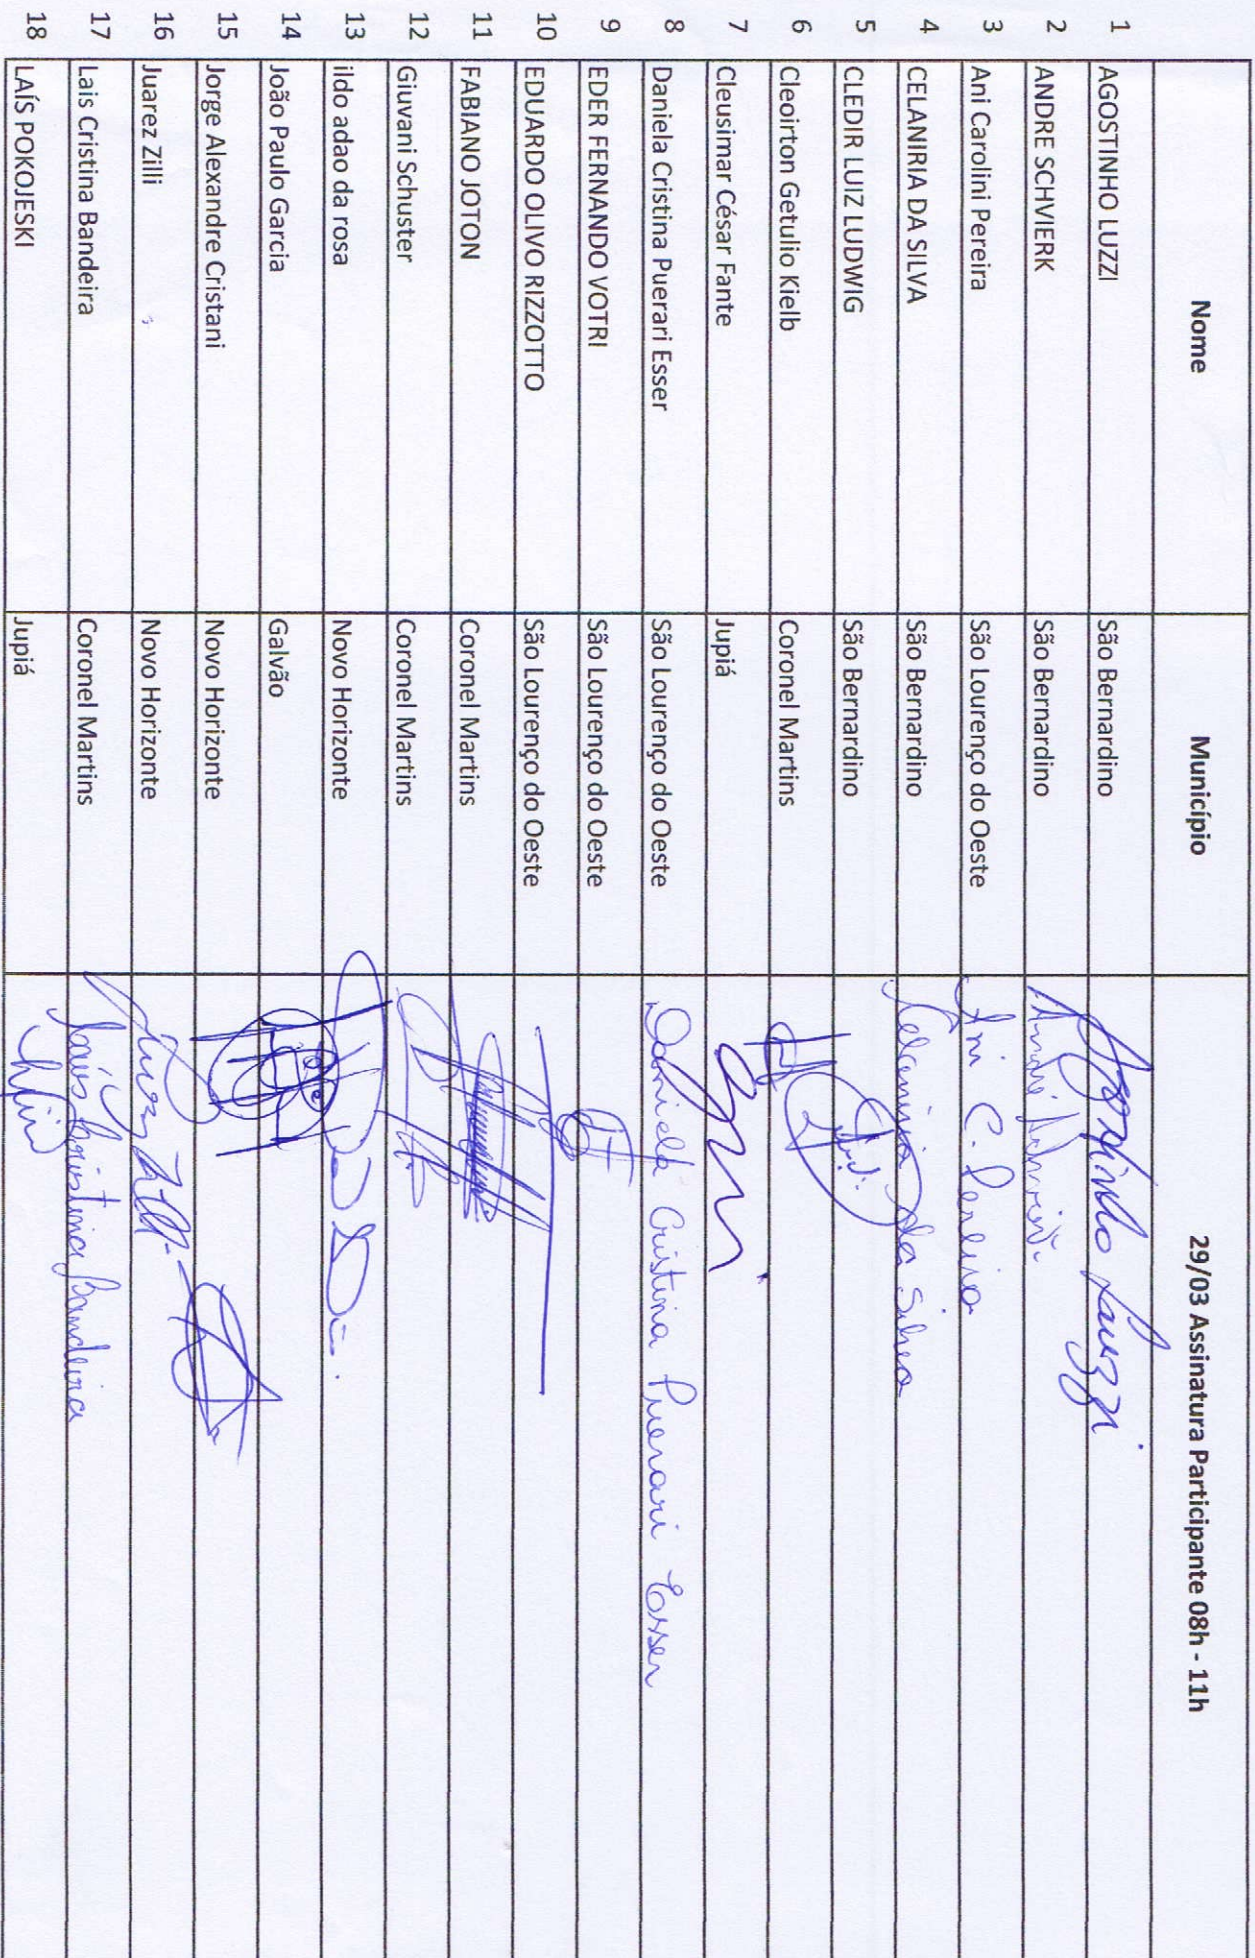 Nome Município 29/03 Assinatura Participante 08h - 11h
1 AGOSTINHO LUZZI São Bernardino Agostinho Luzzi
2 ANDRE SCHVIERK São Bernardino André
3 Ani Carolini Pereira São Lourenço do Oeste Ani C. Pereira
4 CELANIRIA DA SILVA São Bernardino Celaniria da Silva
5 CLEDIR LUIZ LUDWIG São Bernardino
6 Cleoirton Getulio Kielb Coronel Martins
7 Cleusimar César Fante Jupiá
8 Daniela Cristina Puerari Esser São Lourenço do Oeste Daniela Cristina Puerari Esser
9 EDER FERNANDO VOTRI São Lourenço do Oeste
10 EDUARDO OLIVO RIZZOTTO São Lourenço do Oeste
11 FABIANO JOTON Coronel Martins
12 Giuvani Schuster Coronel Martins
13 ildo adao da rosa Novo Horizonte
14 João Paulo Garcia Galvão
15 Jorge Alexandre Cristani Novo Horizonte
16 Juarez Zilli Novo Horizonte Juarez Zilli
17 Lais Cristina Bandeira Coronel Martins Laís Cristina Bandeira
18 LAÍS POKOJESKI Jupiá